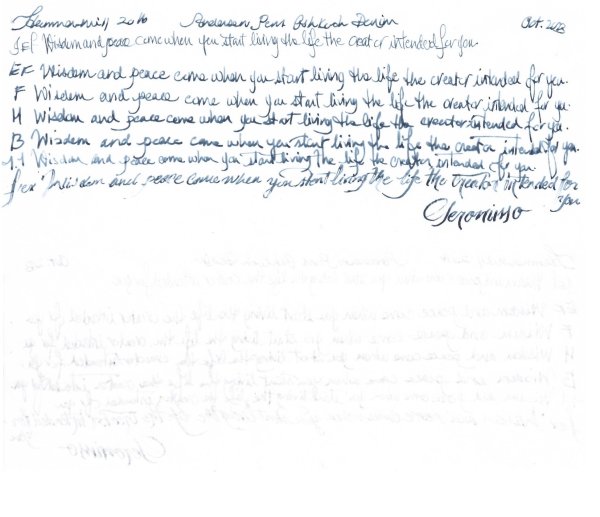 Hammermill 20 lb Anderson Pens Oshkosh Denim Oct. 2023
JEF Wisdom and peace come when you start living the life the creator intended for you.
EF Wisdom and peace come when you start living the life the creator intended for you.
F Wisdom and peace come when you start living the life the creator intended for you.
M Wisdom and peace come when you start living the life the creator intended for you.
B Wisdom and peace come when you start living the life the creator intended for you.
1.1 Wisdom and peace come when you start living the life the creator intended for you.
flex "Wisdom and peace come when you start living the life the creator intended for
you
Geronimo